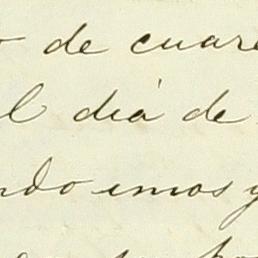 o de cuare
l día de
ndo unos y